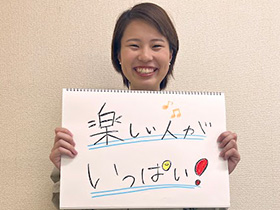 楽しい人が
いっぱい!